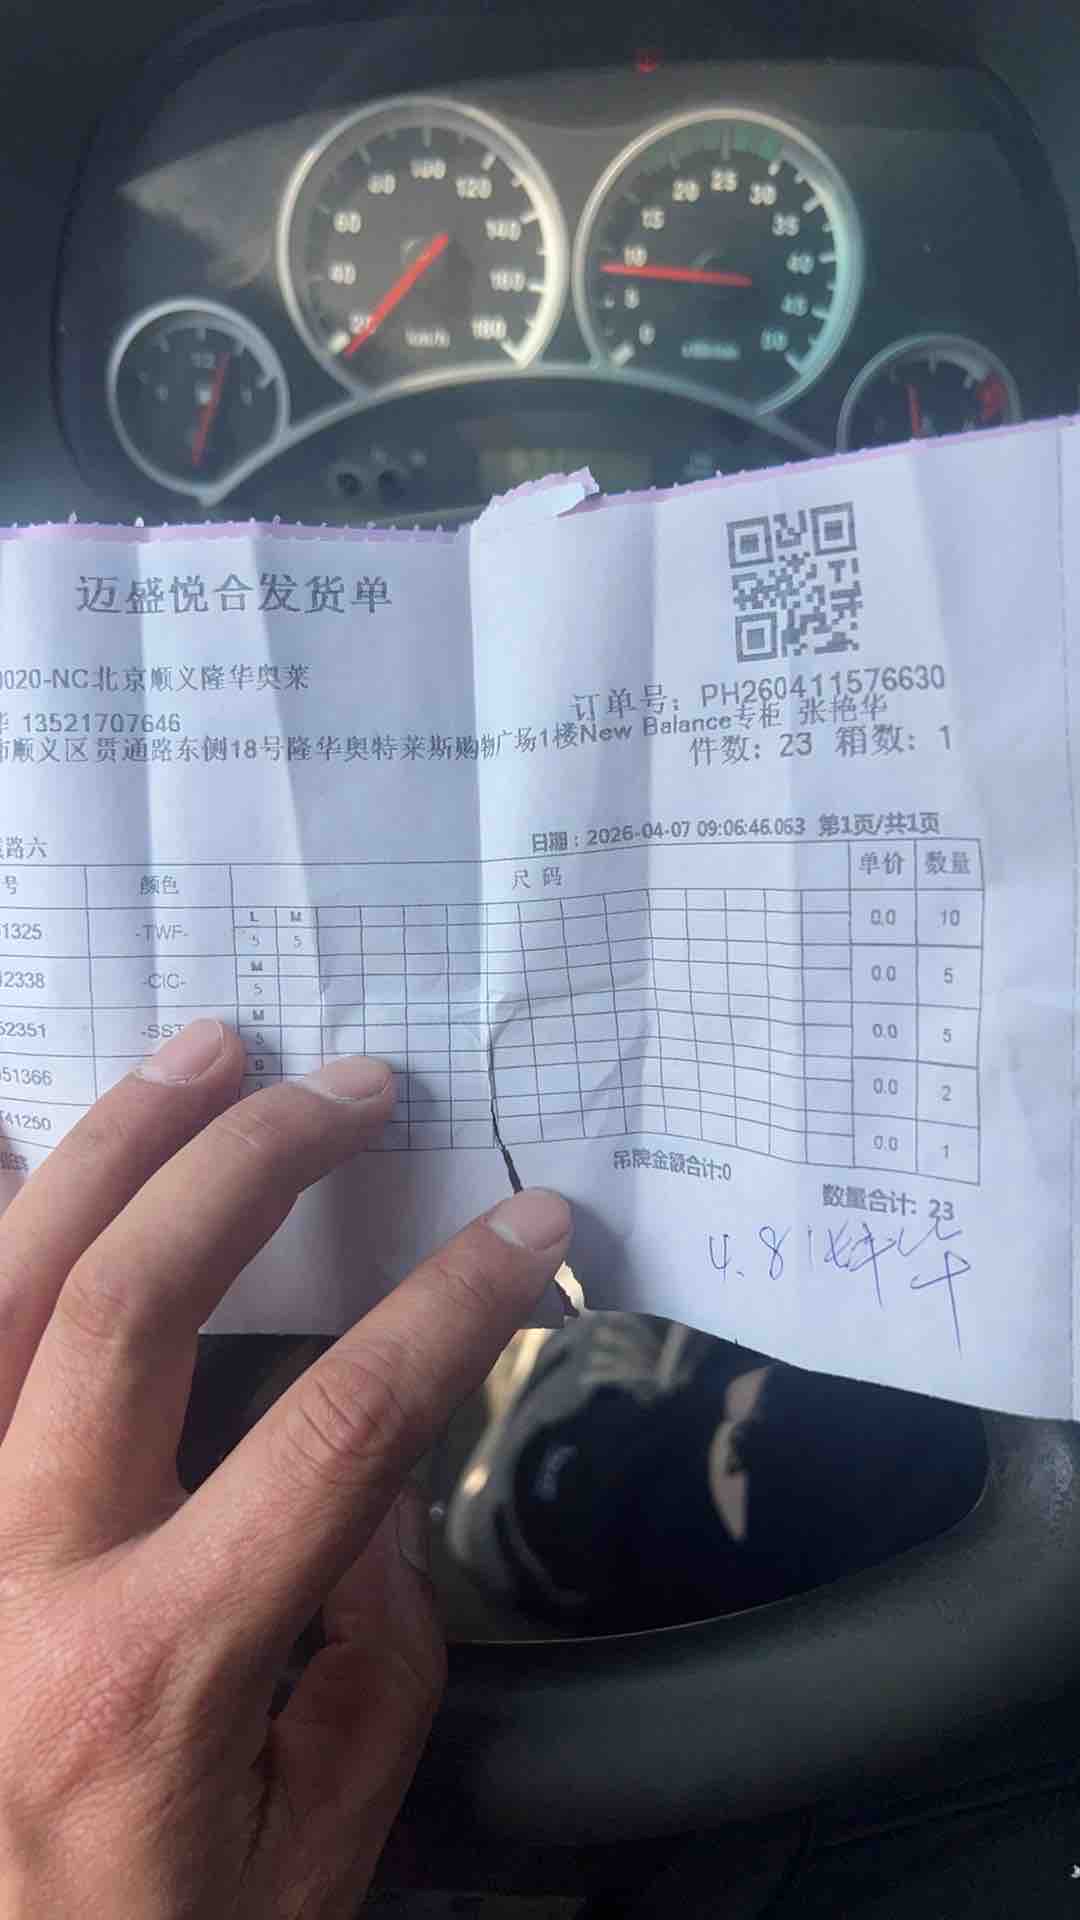 迈盛悦合发货单
020-NC北京顺义隆华奥莱
订单号: PH260411576630
华 13521707646
市顺义区贯通路东侧18号隆华奥特莱斯购物广场1楼New Balance专柜 张艳华
件数: 23 箱数: 1
路六
日期: 2026-04-07 09:06:46.063 第1页/共1页
号 颜色 尺码 单价 数量
L M
1325 -TWF- 5 5 0.0 10
M
2338 -CIC- 5 0.0 5
M
52351 -SST 5 0.0 5
S
51366 0.0 2
41250 0.0 1
吊牌金额合计:0
数量合计: 23
4.8
20 40 60 80 100 120 140 160 180
km/h
0 5 10 15 20 25 30 35 40 45 50